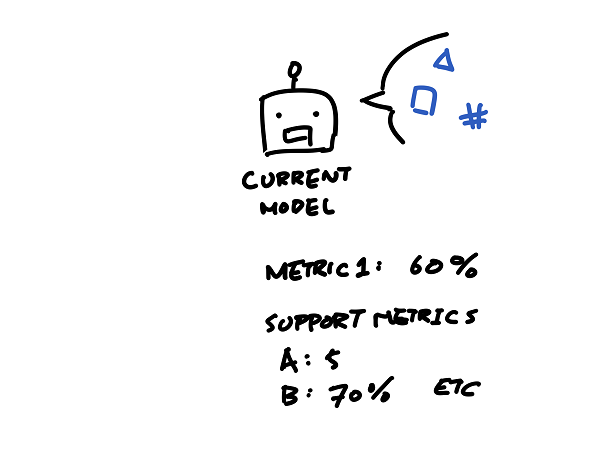 #
CURRENT
MODEL
METRIC 1: 60%
SUPPORT METRICS
A: 5
B: 70% ETC